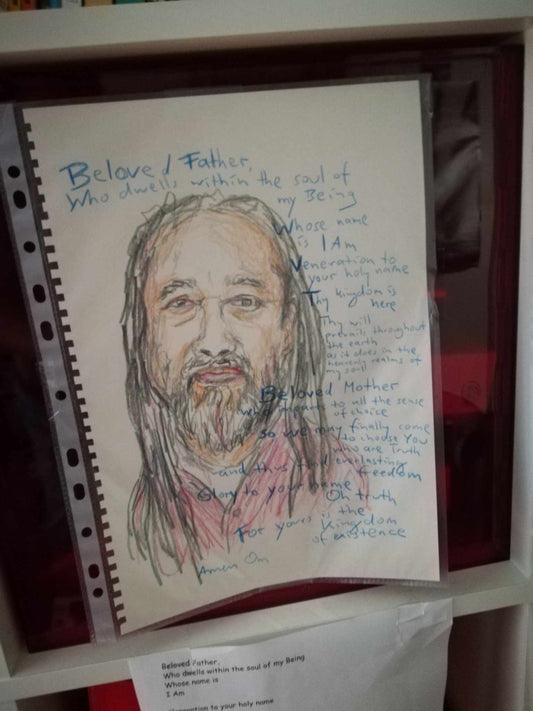 Beloved Father,
Who dwells within the soul of
my Being
Whose name
is I Am
Veneration to
your holy name
Thy kingdom is
here
Thy will
prevails throughout
the earth
as it does in the
heavenly realms of
my soul
Beloved Mother
who means to all the sense
of choice
so we may finally come
to choose You
who are Truth
and thus find everlasting
freedom
Glory to your name
Oh truth
For yours is the
Kingdom
of existence
Amen Om
Beloved Father,
Who dwells within the soul of my Being
Whose name is
I Am
Veneration to your holy name